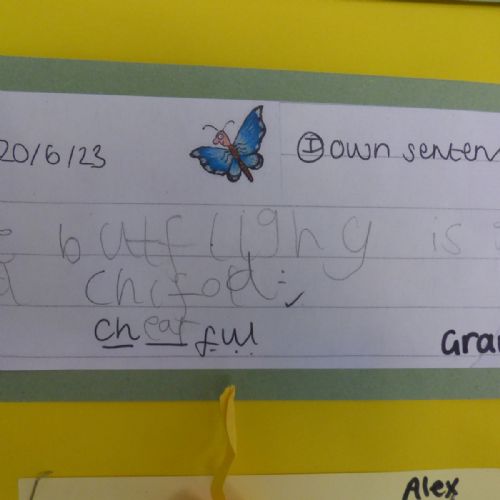 20/6/23 Ⓘ own senten
e butflighy is
d chifod.
chearful
Gra
Alex